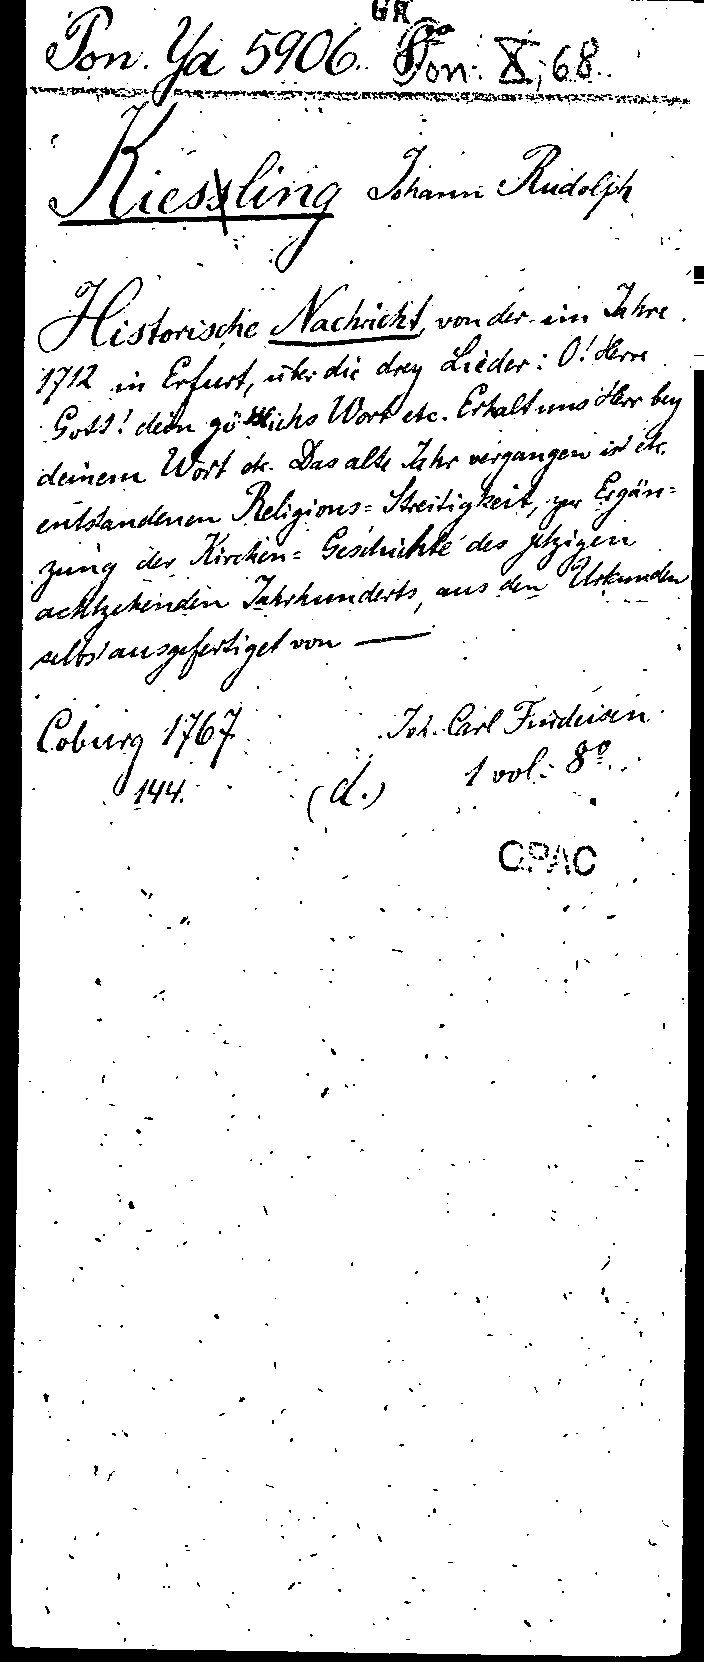 GR
Pon. Ya 5906. Pon. X, 68.
Kiesling Johann Rudolph
Historische Nachricht, von der im Jahre
1712 in Erfurt, über die drey Lieder: O! Herre
Gott! dein göttlichs Wort etc. Erhalt uns Herr bey
deinem Wort etc. Das alte Jahr vergangen ist etc.
entstandenen Religions=Streitigkeit, zur Ergän=
zung der Kirchen=Geschichte des jetzigen
achtzehenden Jahrhunderts, aus den Urkunden
selbst ausgefertiget von —
Coburg 1767 Joh. Carl Findeisen
144. (d.) 1 vol. 8º.
OPAC